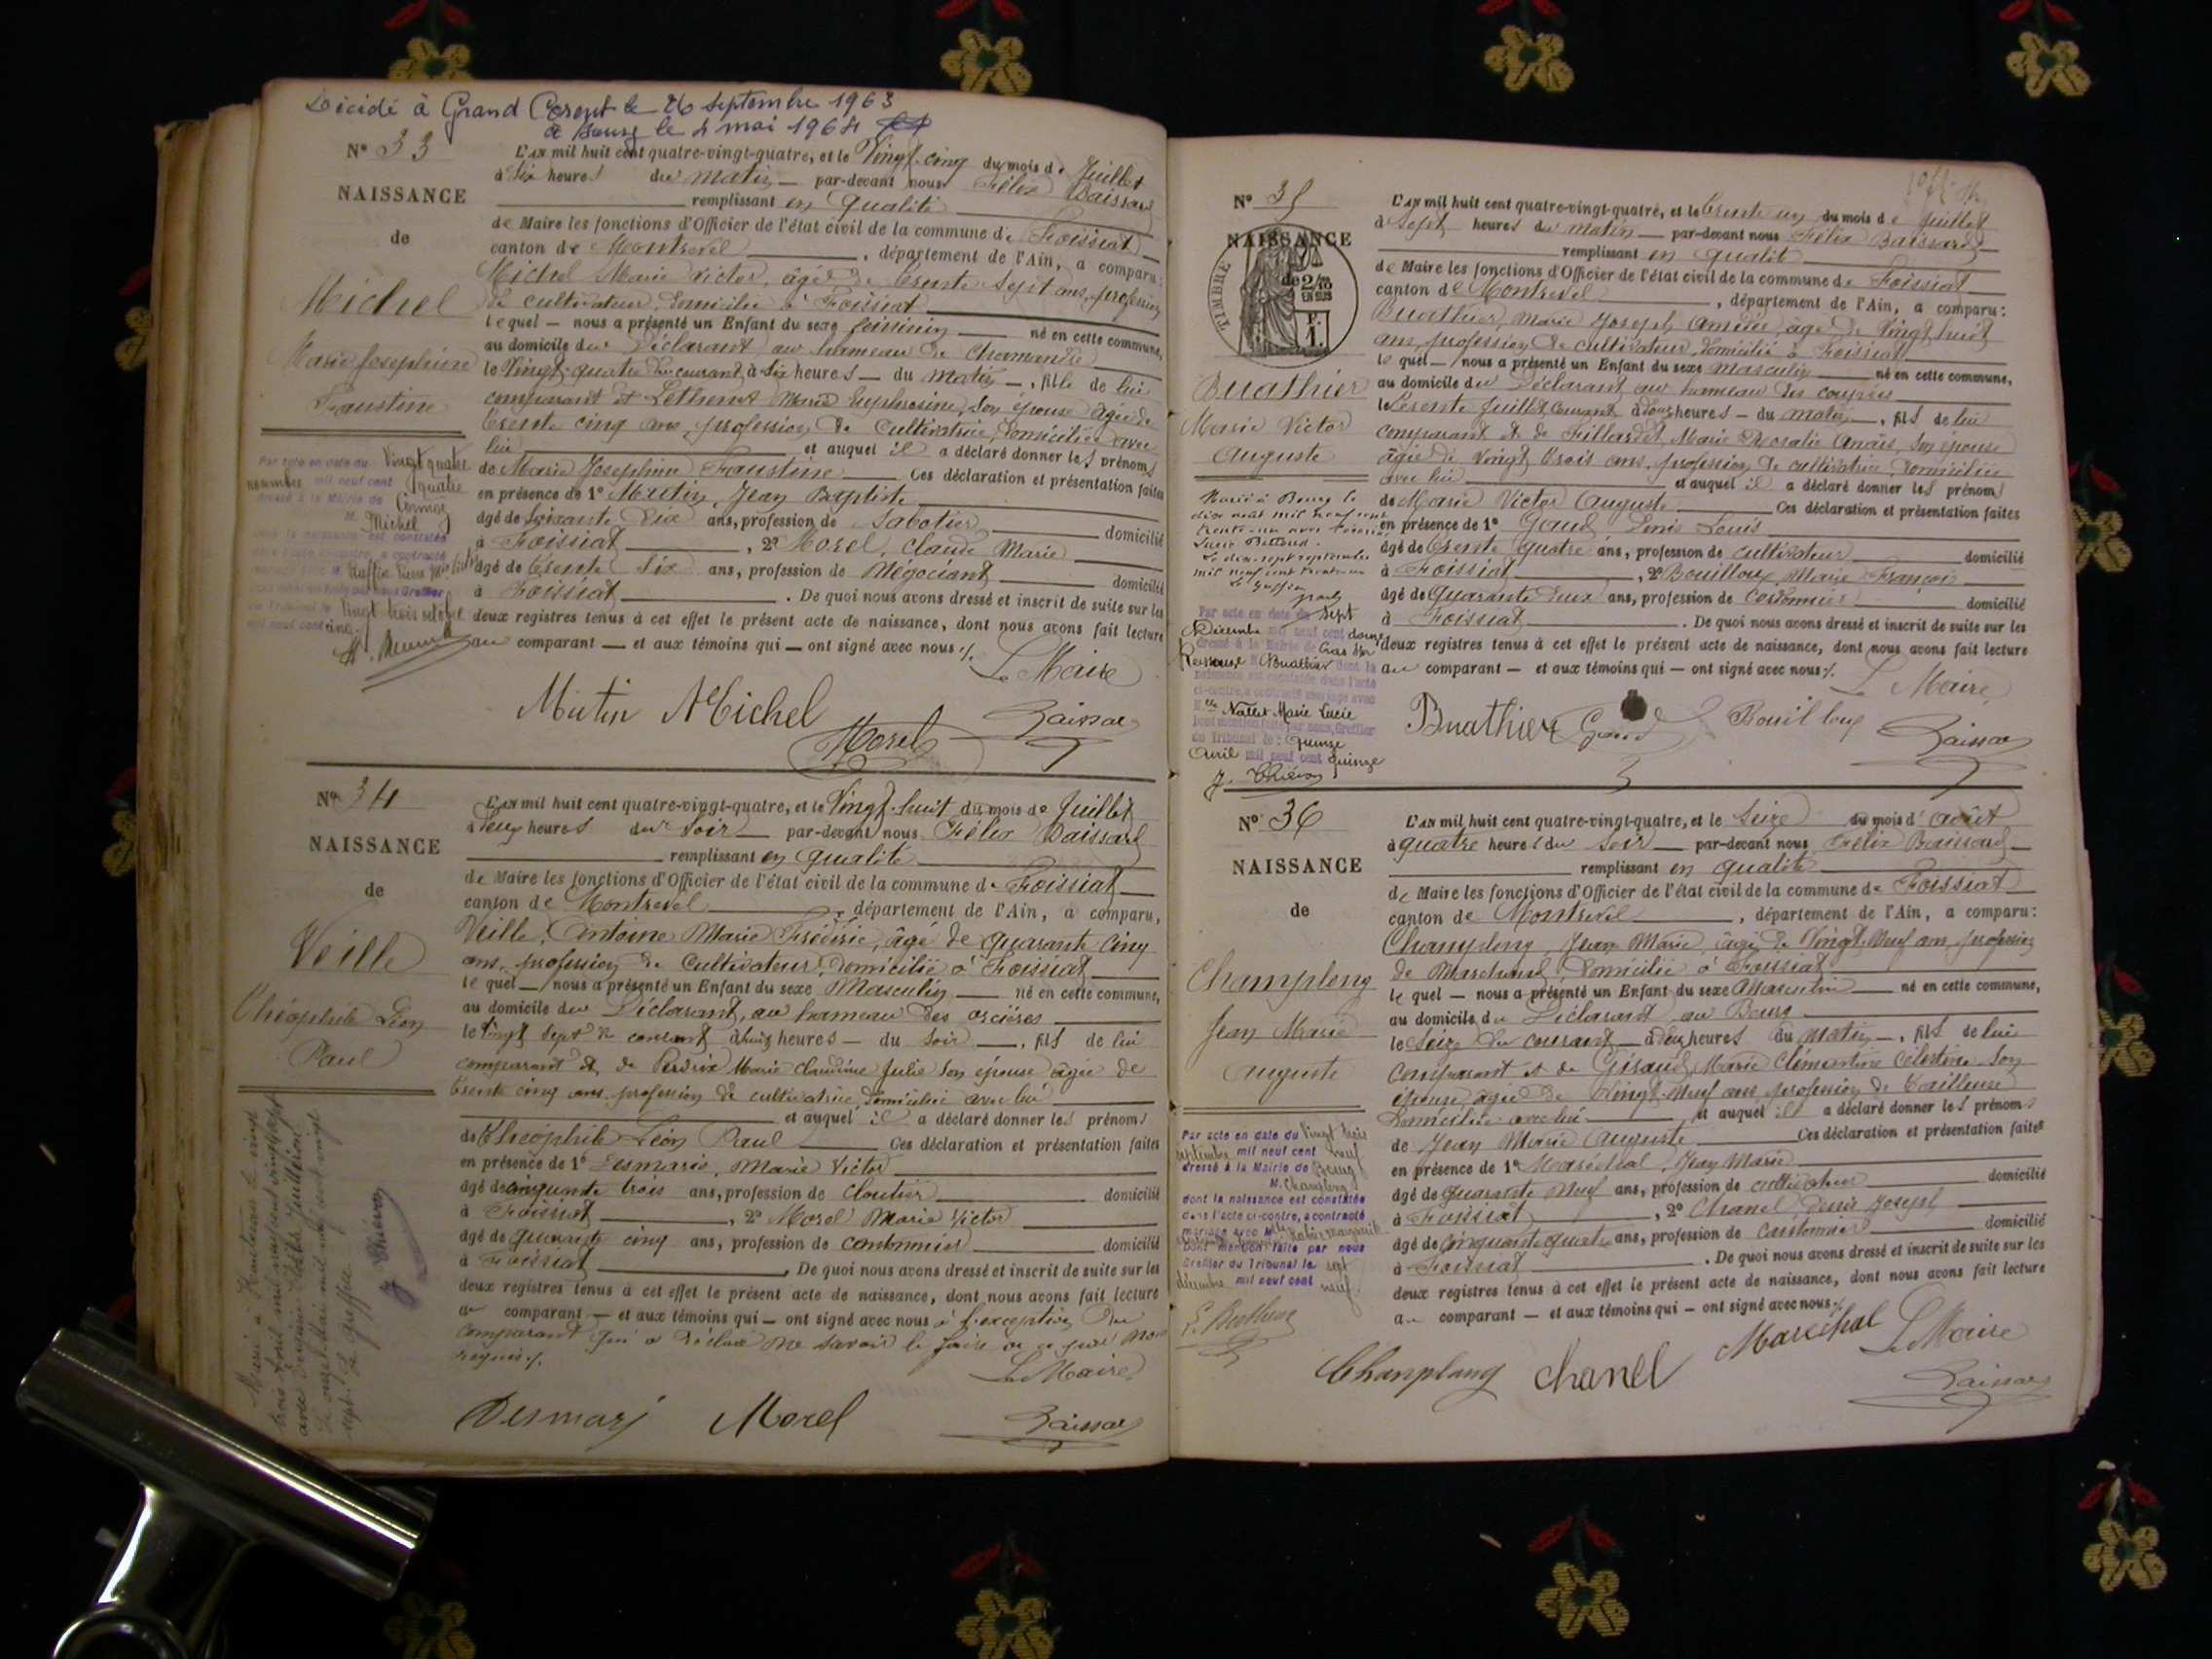 Décidé à Grand Corent le 26 septembre 1963
à Bourg le 4 mai 1964
N° 33
NAISSANCE
de
Michel
Marie Josephine
Faustine
Par acte en date du Vingt quatre
novembre mil neuf cent quatre
dressé à la Mairie de
M. Michel
dont la naissance est constatée
dans l'acte ci-contre, a contracté
du Tribunal le Vingt trois octobre
mil neuf cent cinq.
L'AN mil huit cent quatre-vingt-quatre, et le Vingt-cinq du mois de Juillet
à Six heures du matin — par-devant nous Félix Baissard
remplissant en qualité
de Maire les fonctions d'Officier de l'état civil de la commune de Foissiat
canton de Montrevel, département de l'Ain, a comparu:
Michel Marie Victor, âgé de trente Sept ans, profession
de cultivateur, domicilié à Foissiat
lequel — nous a présenté un Enfant du sexe féminin — né en cette commune,
au domicile du Déclarant au hameau de Chamandre
le Vingt-quatre du courant à six heures — du matin —, fille de lui
comparant et Marie Euphrosine, Son épouse âgée de
trente cinq ans, profession de Cultivatrice, domiciliée avec
lui et auquel il a déclaré donner les prénoms
de Marie Josephine Faustine Ces déclaration et présentation faites
en présence de 1° Mutin, Jean Baptiste
âgé de soixante Dix ans, profession de Sabotier domicilié
à Foissiat, 2° Morel, Claude Marie
âgé de trente Six ans, profession de Négociant domicilié
à Foissiat. De quoi nous avons dressé et inscrit de suite sur les
deux registres tenus à cet effet le présent acte de naissance, dont nous avons fait lecture
au comparant — et aux témoins qui — ont signé avec nous ./.
Le Maire
Mutin Michel
Morel Baissard
N° 34
NAISSANCE
de
Veille
Théophile Léon
Paul
L'AN mil huit cent quatre-vingt-quatre, et le Vingt-huit du mois de Juillet
à deux heures du Soir — par-devant nous Félix Baissard
remplissant en qualité
de Maire les fonctions d'Officier de l'état civil de la commune de Foissiat
canton de Montrevel, département de l'Ain, a comparu,
Veille, Antoine Marie Frédéric, âgé de quarante cinq
ans, profession de Cultivateur, domicilié à Foissiat
lequel — nous a présenté un Enfant du sexe Masculin — né en cette commune,
au domicile du Déclarant, au hameau des orcières
le Vingt Sept du courant à huit heures — du Soir —, fils de lui
comparant et de Perdrix Marie Claudine Julie Son épouse âgée de
trente cinq ans, profession de cultivatrice, domiciliée avec lui
et auquel il a déclaré donner les prénoms
de Théophile Léon Paul Ces déclaration et présentation faites
en présence de 1° Desmaris, Marie Victor
âgé de cinquante trois ans, profession de cloutier domicilié
à Foissiat, 2° Morel Marie Victor
âgé de quarante cinq ans, profession de cantonnier domicilié
à Foissiat. De quoi nous avons dressé et inscrit de suite sur les
deux registres tenus à cet effet le présent acte de naissance, dont nous avons fait lecture
au comparant — et aux témoins qui — ont signé avec nous à l'exception du
comparant qui a déclaré ne savoir le faire de ce par nous
requis ./.
Le Maire
Desmari Morel Baissard
N° 35
NAISSANCE
TIMBRE
de
2/10
EN SUS
Buathier
Marie Victor
Auguste
Marié à Bourg le
dix août mil neuf cent
trente-un avec
Le dix-sept septembre
mil neuf cent trente-un
Le Greffier
Par acte en date du Sept
Décembre mil neuf cent douze
dressé à la Mairie de Cras sur
Ressouze M. Buathier dont la
naissance est constatée dans l'acte
ci-contre, a contracté mariage avec
Mlle Nallet Marie Lucie
dont mention faite par nous, Greffier
du Tribunal le: quinze
Avril mil neuf cent quinze
L'AN mil huit cent quatre-vingt-quatre, et le trente un du mois de Juillet
à Sept heures du matin — par-devant nous Félix Baissard
remplissant en qualité
de Maire les fonctions d'Officier de l'état civil de la commune de Foissiat
canton de Montrevel, département de l'Ain, a comparu:
Buathier, Marie Joseph Amédée âgé de Vingt huit
ans, profession de cultivateur, domicilié à Foissiat
lequel — nous a présenté un Enfant du sexe masculin né en cette commune,
au domicile du Déclarant au hameau des
le trente Juillet Courant à douze heures — du matin —, fils de lui
comparant et de Fillardet Marie Rosalie Anaïs, Son épouse
âgée de Vingt trois ans, profession de cultivatrice, domiciliée
avec lui et auquel il a déclaré donner les prénoms
de Marie Victor Auguste Ces déclaration et présentation faites
en présence de 1° Gaud, Denis Louis
âgé de trente quatre ans, profession de cultivateur domicilié
à Foissiat, 2° Bouilloux Marie François
âgé de quarante deux ans, profession de Cordonnier domicilié
à Foissiat. De quoi nous avons dressé et inscrit de suite sur les
deux registres tenus à cet effet le présent acte de naissance, dont nous avons fait lecture
au comparant — et aux témoins qui — ont signé avec nous ./.
Le Maire
Buathier Gaud Bouilloux Baissard
N° 36
NAISSANCE
de
Champlong
Jean Marie
Auguste
Par acte en date du Vingt trois
septembre mil neuf cent neuf
dressé à la Mairie de Bourg
M. Champlong
dont la naissance est constatée
dans l'acte ci-contre, a contracté
mariage avec
dont mention faite par nous
Greffier du Tribunal le sept
décembre mil neuf cent neuf.
L'AN mil huit cent quatre-vingt-quatre, et le Seize du mois d'août
à quatre heures du Soir — par-devant nous Félix Baissard
remplissant en qualité
de Maire les fonctions d'Officier de l'état civil de la commune de Foissiat
canton de Montrevel, département de l'Ain, a comparu:
Champlong, Jean Marie, âgé de Vingt-Neuf ans, profession
de Maréchal, domicilié à Foissiat
lequel — nous a présenté un Enfant du sexe Masculin né en cette commune,
au domicile du Déclarant au Bourg
le Seize du courant à deux heures du matin —, fils de lui
comparant et de Giraud, Marie Clémentine Célestine Son
épouse âgée de Vingt-Neuf ans, profession de tailleuse
domiciliée avec lui et auquel il a déclaré donner les prénoms
de Jean Marie Auguste Ces déclaration et présentation faites
en présence de 1° Maréchal, Jean Marie
âgé de quarante Neuf ans, profession de cultivateur domicilié
à Foissiat, 2° Chanel, Denis Joseph
âgé de cinquante quatre ans, profession de cantonnier domicilié
à Foissiat. De quoi nous avons dressé et inscrit de suite sur les
deux registres tenus à cet effet le présent acte de naissance, dont nous avons fait lecture
au comparant — et aux témoins qui — ont signé avec nous ./.
Le Maire
Champlong Chanel Maréchal Baissard